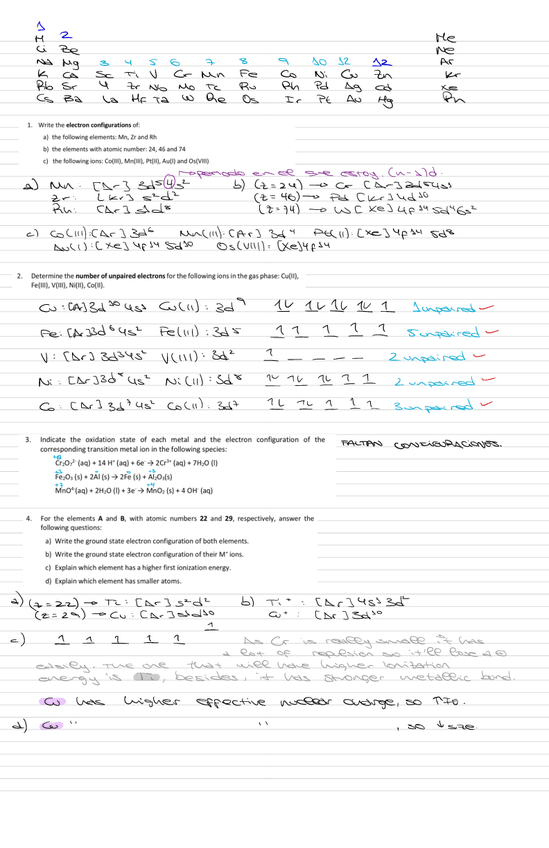 1
H 2 He
Li Be Ne
Na Mg 3 4 5 6 7 8 9 10 12 12 Ar
K Ca Sc Ti V Cr Mn Fe Co Ni Cu Zn Kr
Rb Sr Y Zr Nb Mo Tc Ru Rh Pd Ag Cd Xe
Cs Ba La Hf Ta W Re Os Ir Pt Au Hg Rn
1. Write the electron configurations of:
a) the following elements: Mn, Zr and Rh
b) the elements with atomic number: 24, 46 and 74
c) the following ions: Co(III), Mn(III), Pt(II), Au(I) and Os(VIII)
en el (n-1)d.
a) Mn: [Ar] 3d5 4s2 b) (z=24) → Cr [Ar] 3d5 4s1
Zr: [Kr] s2d2 (z=46) → Pd [Kr] 4d10
Rh: [Ar] s1d8 (z=74) → W [Xe] 4f14 5d4 6s2
c) Co(III): [Ar] 3d6 Mn(III): [Ar] 3d4 Pt(II): [Xe] 4f14 5d8
Au(I): [Xe] 4f14 5d10 Os(VIII): [Xe] 4f14
2. Determine the number of unpaired electrons for the following ions in the gas phase: Cu(II),
Fe(III), V(III), Ni(II), Co(II).
Cu: [Ar] 3d10 4s1 Cu(II): 3d9 1L 1L 1L 1L 1 1 unpaired ✓
Fe: [Ar] 3d6 4s2 Fe(III): 3d5 1 1 1 1 1 5 unpaired ✓
V: [Ar] 3d3 4s2 V(III): 3d2 1 _ _ _ _ 2 unpaired ✓
Ni: [Ar] 3d8 4s2 Ni(II): 3d8 1L 1L 1L 1 1 2 unpaired ✓
Co: [Ar] 3d7 4s2 Co(II): 3d7 1L 1L 1 1 1 3 unpaired ✓
3. Indicate the oxidation state of each metal and the electron configuration of the FALTAN CONFIGURACIONES.
corresponding transition metal ion in the following species:
+6
Cr2O7 2- (aq) + 14 H+ (aq) + 6e- → 2Cr3+ (aq) + 7H2O (l)
Fe2O3 (s) + 2Al (s) → 2Fe (s) + Al2O3(s)
+7 +4
MnO4- (aq) + 2H2O (l) + 3e- → MnO2 (s) + 4 OH- (aq)
4. For the elements A and B, with atomic numbers 22 and 29, respectively, answer the
following questions:
a) Write the ground state electron configuration of both elements.
b) Write the ground state electron configuration of their M+ ions.
c) Explain which element has a higher first ionization energy.
d) Explain which element has smaller atoms.
a) (z=22) → Ti: [Ar] s2d2 b) Ti+: [Ar] 4s1 3d2
(z=29) → Cu: [Ar] s1d10 Cu+: [Ar] 3d10
1
c) 1 1 1 1 1 As Cr is really small it has
a lot of repulsion so it'll lose a e
easily. The one that will have higher ionization
energy is , besides, it has stronger metallic bond.
Cu has higher effective nuclear charge, so ↑
d) Cu " " , so ↓ size.